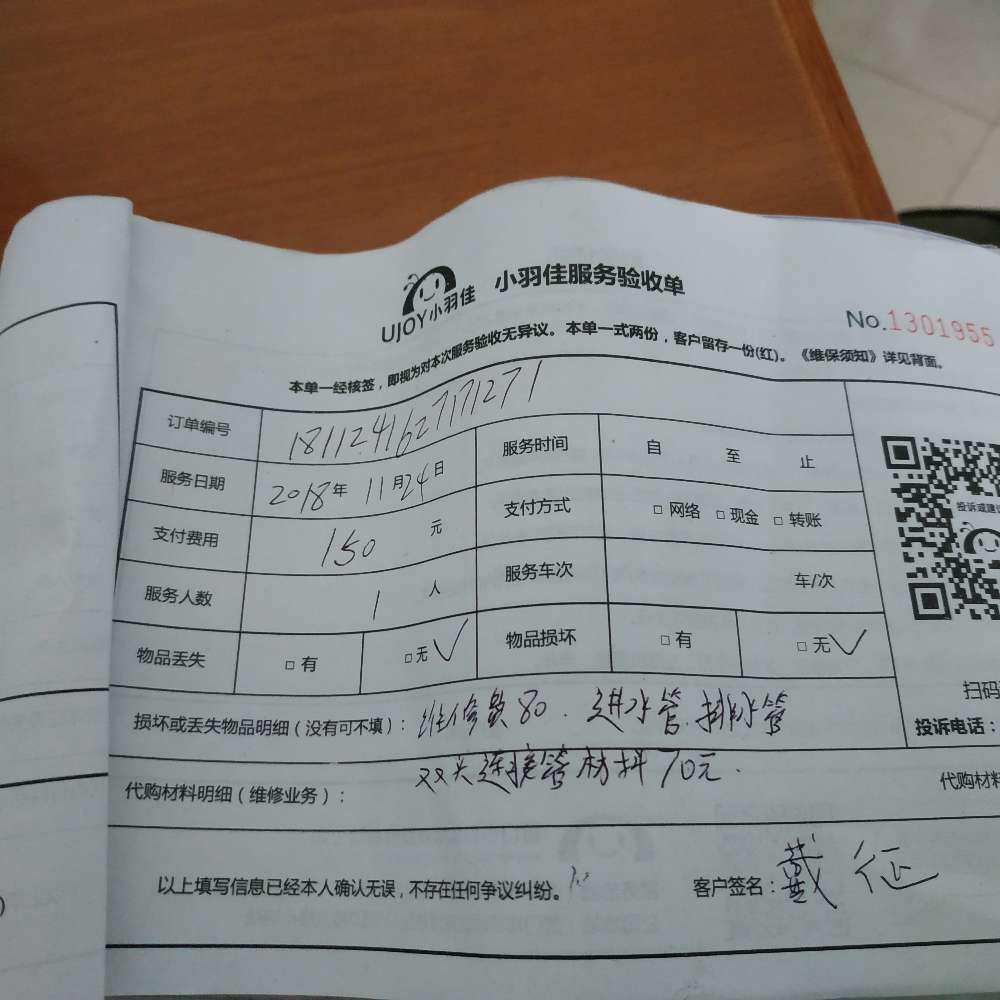 UJOY小羽佳 小羽佳服务验收单
No.1301955
本单一经核签，即视为对本次服务验收无异议。本单一式两份，客户留存一份(红)。《维保须知》详见背面。
订单编号 1811241627171271
服务日期 2018年 11月24日 服务时间 自 至 止
支付费用 150 元 支付方式 □ 网络 □ 现金 □ 转账
服务人数 1 人 服务车次 车/次
物品丢失 □ 有 □ 无 √ 物品损坏 □ 有 □ 无 √
投诉或建议
扫码
投诉电话：
损坏或丢失物品明细（没有可不填）： 维修费80. 进水管 排水管
双头连接管材料70元.
代购材料明细（维修业务）： 代购材料
以上填写信息已经本人确认无误，不存在任何争议纠纷。 客户签名： 戴征